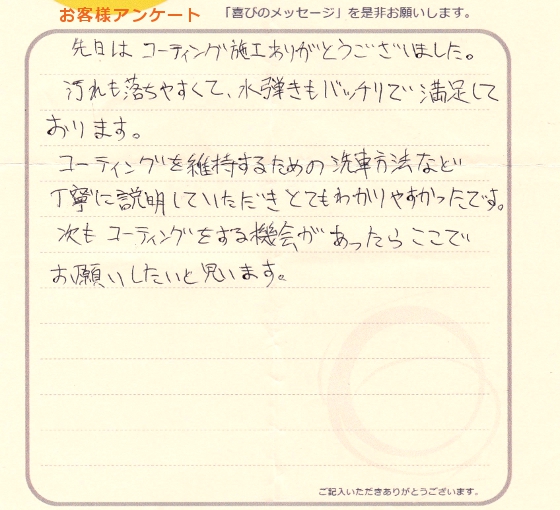 お客様アンケート 「喜びのメッセージ」を是非お願いします。
先日は コーティング施工ありがとうございました。
汚れも落ちやすくて、水弾きもバッチリで満足して
おります。
コーティングを維持するための洗車方法など
丁寧に説明していただきとてもわかりやすかったです。
次も コーティングをする機会が あったら ここで
お願いしたいと思います。
ご記入いただきありがとうございます。